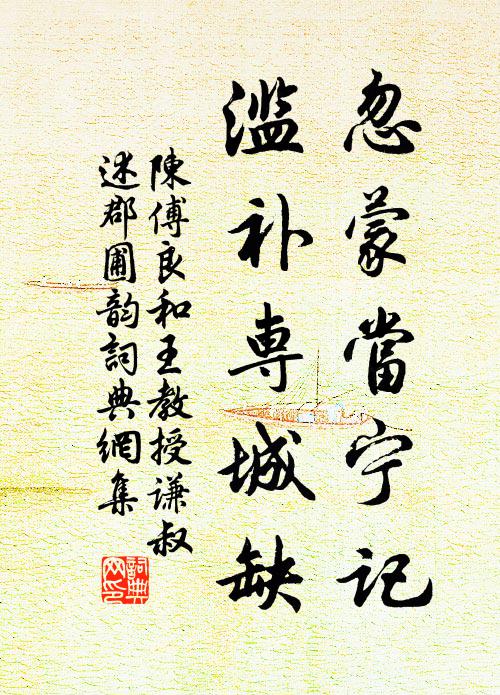 忽蒙當宁记
滥补専城缺
陳傅良和王教授谦叔
述郡圃韵詞典網集
詞典网印